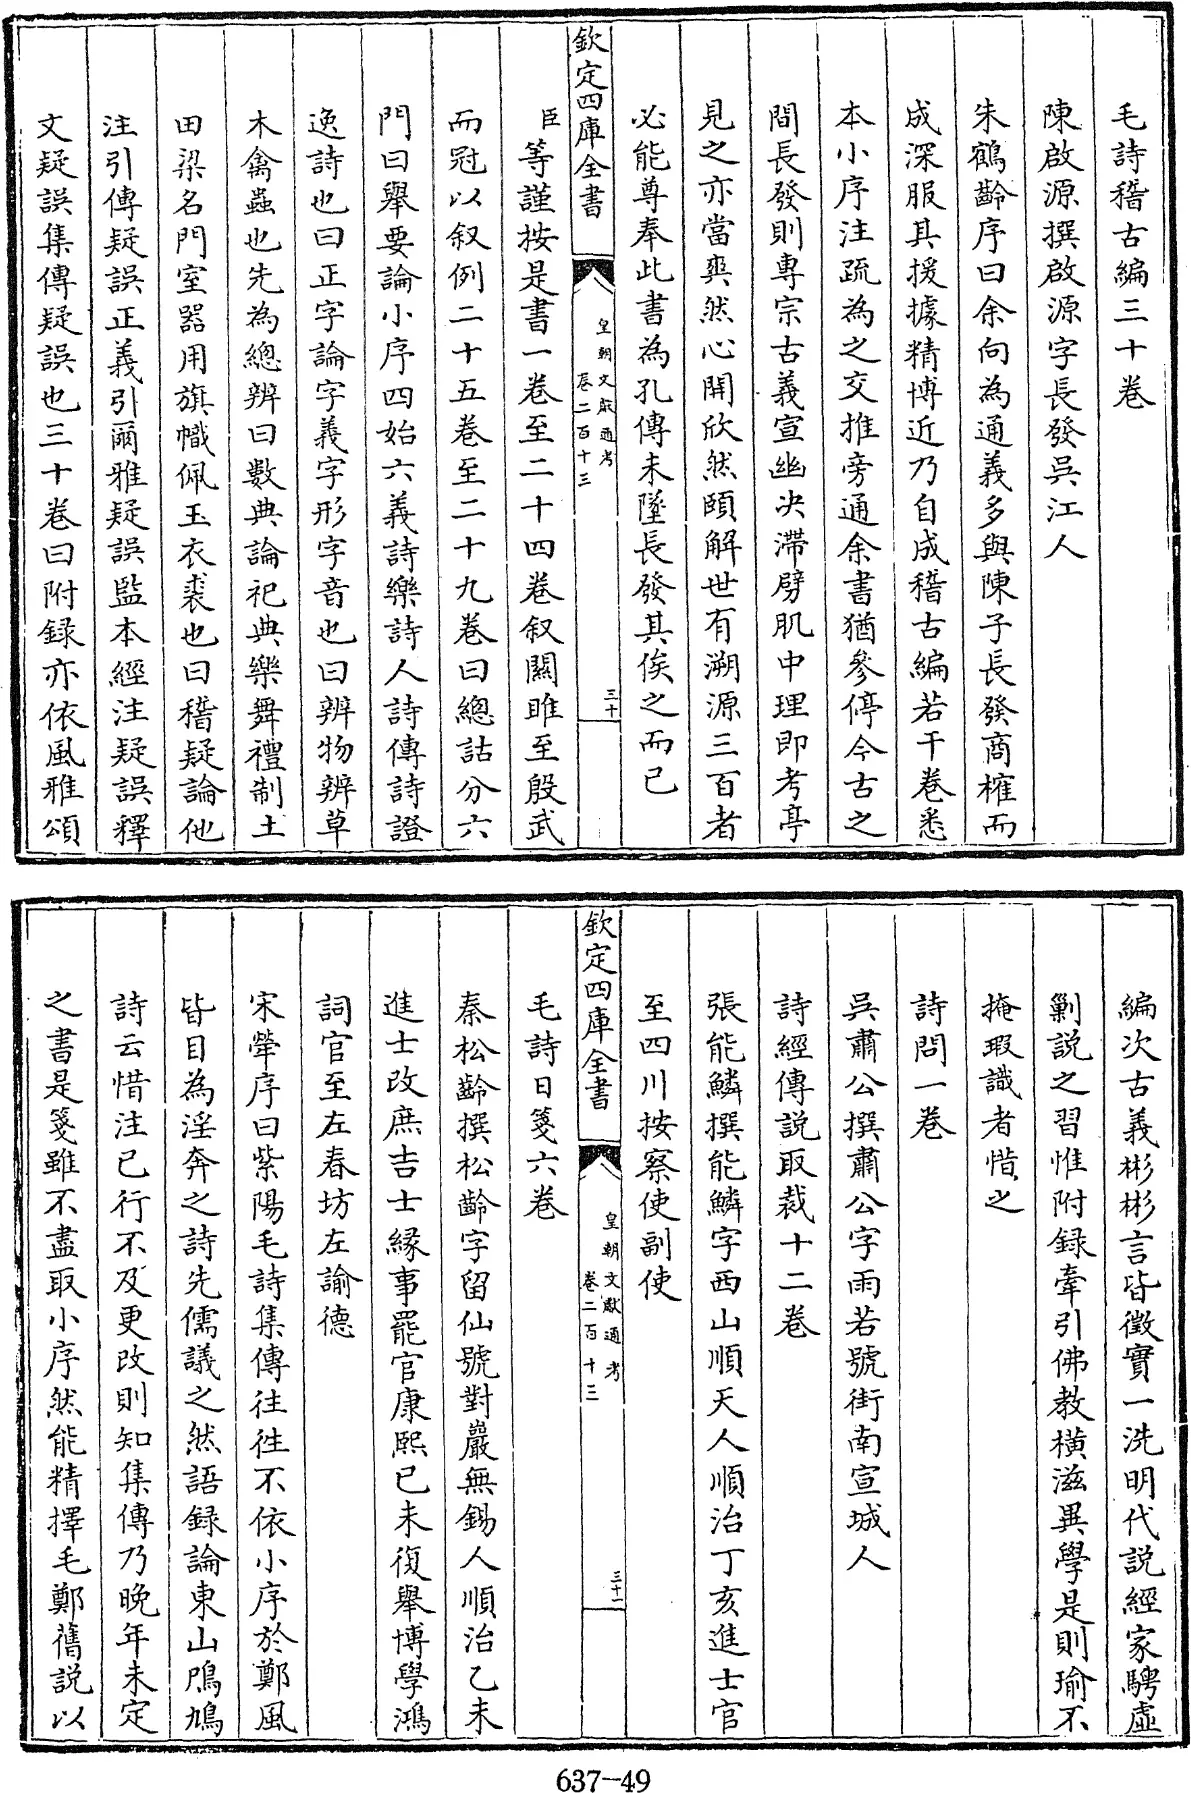 毛詩稽古編三十卷
陳啟源撰啟源字長發吳江人
朱鶴齡序曰余向為通義多與陳子長發商榷而
成深服其援據精博近乃自成稽古編若干卷悉
本小序注疏為之交推旁通余書猶參停今古之
間長發則專宗古義宣幽決滯劈肌中理即考亭
見之亦當爽然心開欣然頤解世有溯源三百者
必能尊奉此書為孔傳未墜長發其俟之而已
欽定四庫全書
皇朝文獻通考
卷二百十三
三十
臣等謹按是書一卷至二十四卷叙關雎至殷武
而冠以叙例二十五卷至二十九卷曰總詁分六
門曰舉要論小序四始六義詩樂詩人詩傳詩證
逸詩也曰正字論字義字形字音也曰辨物辨草
木禽蟲也先為總辨曰數典論祀典樂舞禮制土
田梁名門室器用旗幟佩玉衣裘也曰稽疑論他
注引傳疑誤正義引爾雅疑誤監本經注疑誤釋
文疑誤集傳疑誤也三十卷曰附録亦依風雅頌
編次古義彬彬言皆徵實一洗明代說經家騁虛
剿説之習惟附録牽引佛教橫滋異學是則瑜不
掩瑕識者惜之
詩問一卷
吳肅公撰肅公字雨若號街南宣城人
詩經傳説取裁十二卷
張能鱗撰能鱗字西山順天人順治丁亥進士官
至四川按察使副使
欽定四庫全書
皇朝文獻通考
卷二百十三
三十一
毛詩日箋六卷
秦松齡撰松齡字留仙號對巖無錫人順治乙未
進士改庶吉士緣事罷官康熙己未復舉博學鴻
詞官至左春坊左諭德
宋犖序曰紫陽毛詩集傳往往不依小序於鄭風
皆目為淫奔之詩先儒議之然語録論東山鴟鳩
詩云惜注已行不及更改則知集傳乃晚年未定
之書是箋雖不盡取小序然能精擇毛鄭舊説以
637-49